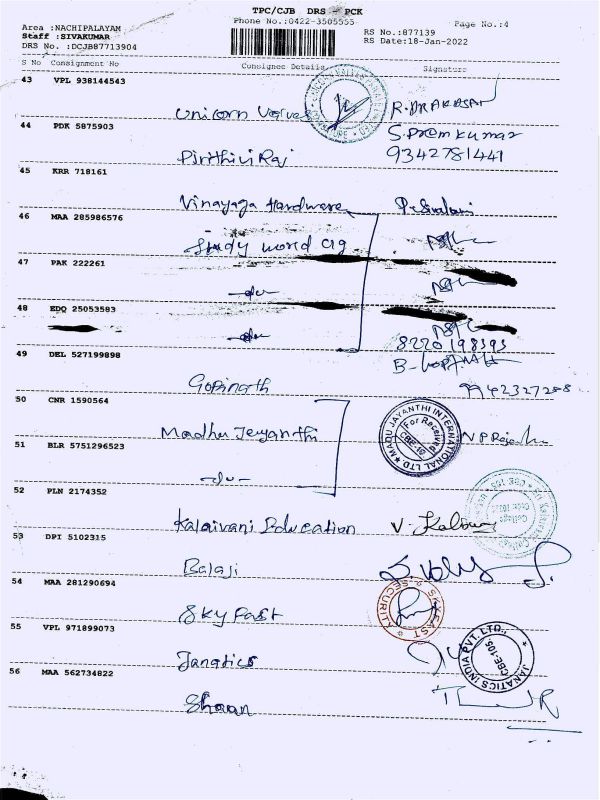 TPC/CJB DRS - PCK
Area :NACHIPALAYAM Phone No.:0422-3505555 Page No.:4
Staff :SIVAKUMAR RS No.:877139
DRS No. :DCJB87713904 RS Date:18-Jan-2022
S No Consignment No Consignee Details Signature
43 VPL 938144543
Unicorn Valves
44 PDK 5875903 S.Premkumar
Prithivi Raj 9342781441
45 KRR 718161
Vinayaga Hardware
46 MAA 285986576
Study world clg
47 PAK 222261
-do-
48 EDQ 25053583
-do-
8220198393
49 DEL 527199898
Gopinath
50 CNR 1590564
Madhu Jeyanthi MADU JAYANTHI INTERNATIONAL LTD For Received CBE-19
51 BLR 5751296523
-do-
52 PLN 2174352
Kalaivani Education
53 DPI 5102315
Balaji
54 MAA 281290694
Sky Fast SKY FAST SECURITY
55 VPL 971899073
Janatics JANATICS INDIA PVT. LTD., CBE-105
56 MAA 562734822
Sharan